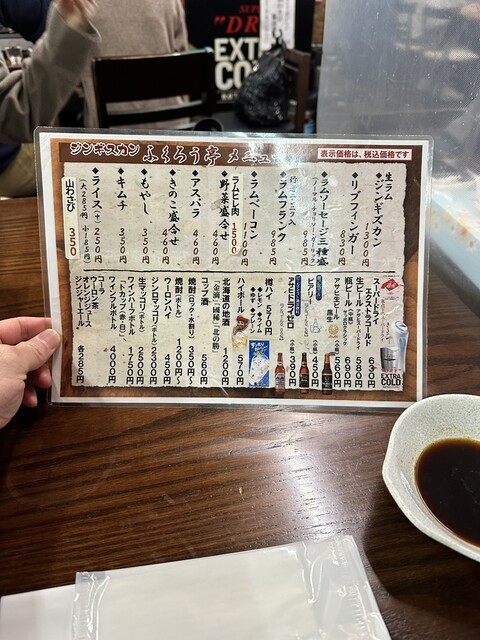 SUPER
"DR
EXTRA
COLD
ジンギスカン ふくろう亭 メニュー
表示価格は、税込価格です
◆生ラム
ジンギスカン 1300
◆リブフィンガー 830円
◆ラムソーセージ三種盛 985円
◆ラムフランク 985円
◆ラムベーコン 1100円
ラムヒレ肉 1500
◆野菜盛合せ 460円
◆アスパラ 460円
◆きのこ盛合せ 460円
◆もやし 350円
◆キムチ 350円
◆ライス(中) 250円
(大)285円 (小)185円
山わさび 350
スーパードライ
エクストラコールド 630円
生ビール 580円
瓶ビール 690円
アサヒ生ビール 黒生 560円
(小瓶) 450円
アサヒドライゼロ (小瓶) 390円
樽ハイ 570円
ハイボール 570円
北海道の地酒 1200円
「金滴」「國稀」「北の勝」
コップ酒 560円
焼酎(ロック・水割り) 350円〜
焼酎(ボトル) 1200円〜
ウーロンハイ 450円
ジンロ(ボトル) 2500円
生マッコリ(ボトル) 1750円
ワインハーフボトル
ワインフルボトル 4000円
コーラ
ウーロン茶
オレンジジュース
ジンジャーエール 各285円
EXTRA
COLD